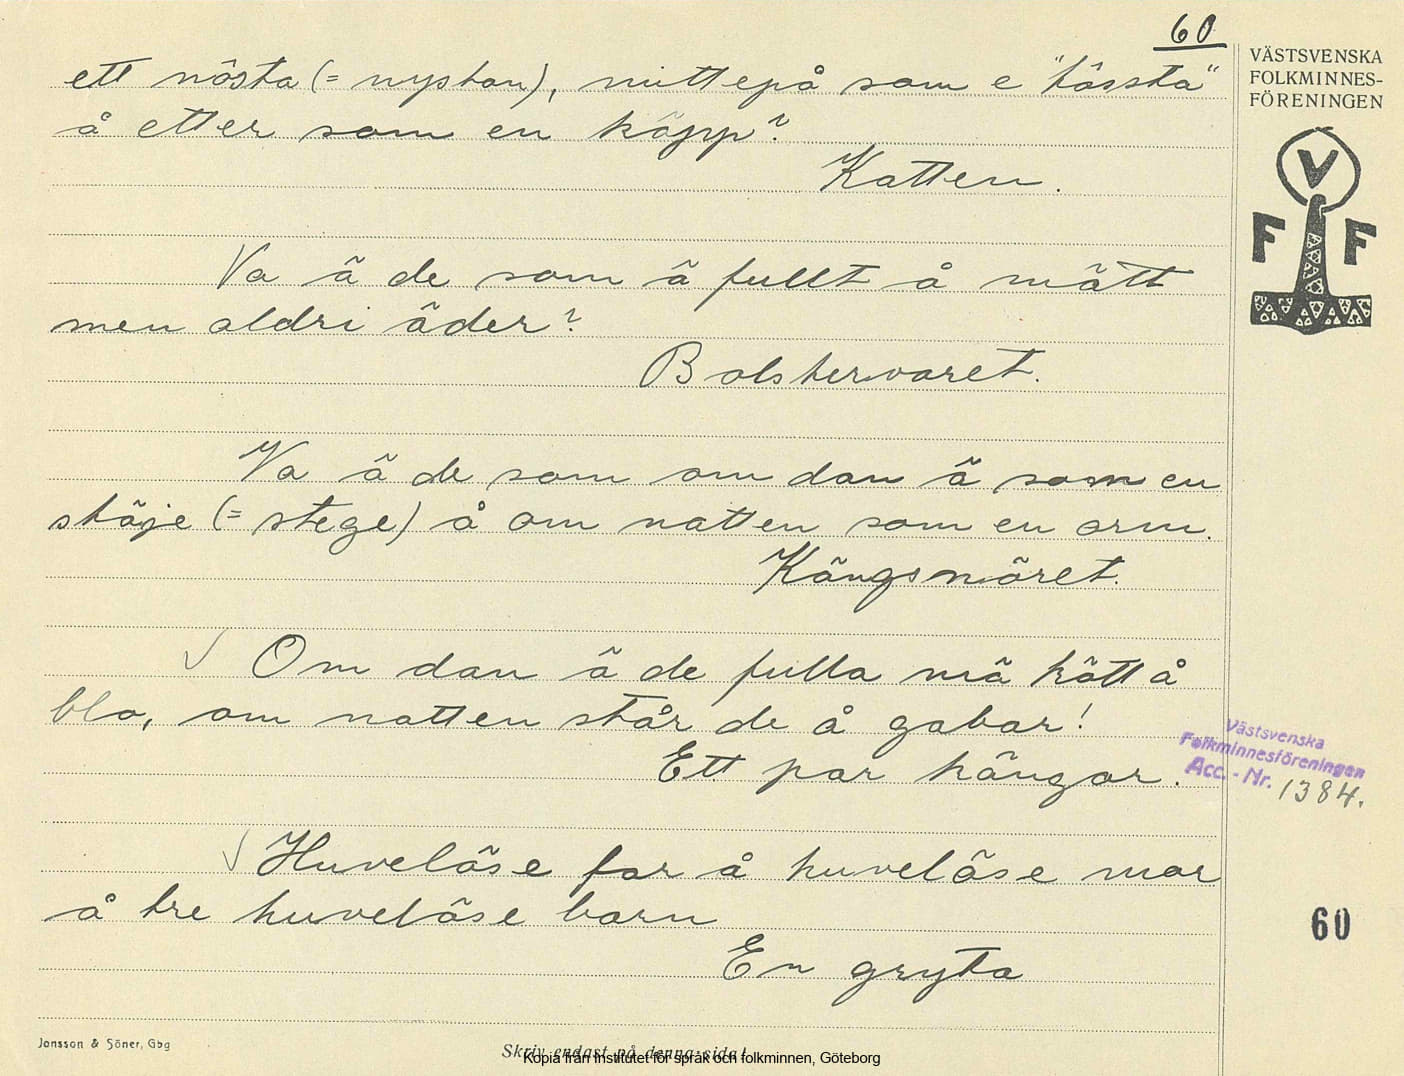 60
ett nösta (= nystan), mittepå som e "tössta"
å etter som en käpp?
Katten.
Va ä de som ä fullt å mätt
men aldri äder?
Bolstervaret.
Va ä de som om dan ä som en
stäje (= stege) å om natten som en orm.
Kängsnöret.
Om dan ä de fulla mä kött å
blo, om natten står de å gabar!
Ett par kängor.
Huveläse far å huveläse mor
å tre huveläse barn
En gryta
VÄSTSVENSKA
FOLKMINNES-
FÖRENINGEN
V
F F
Västsvenska
Folkminnesföreningen
Acc. - Nr. 1384.
60
Jonsson & Söner, Gbg
Skriv endast på denna sida!
Kopia från Institutet för språk och folkminnen, Göteborg